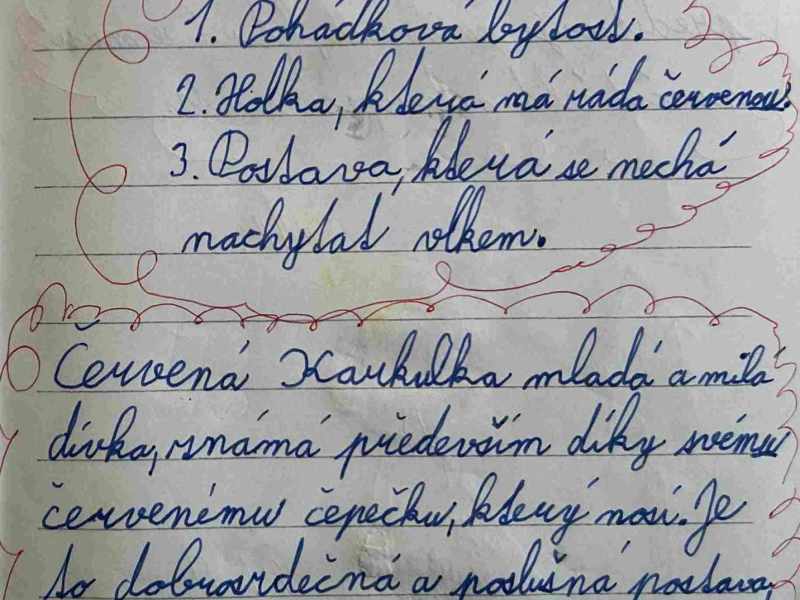 1. Pohádková bytost.
2. Holka, která má ráda červenou.
3. Postava, která se nechá
nachytat vlkem.
Červená Karkulka mladá a milá
dívka, známá především díky svému
červenému čepečku, který nosí. Je
to dobrosrdečná a poslušná postava,